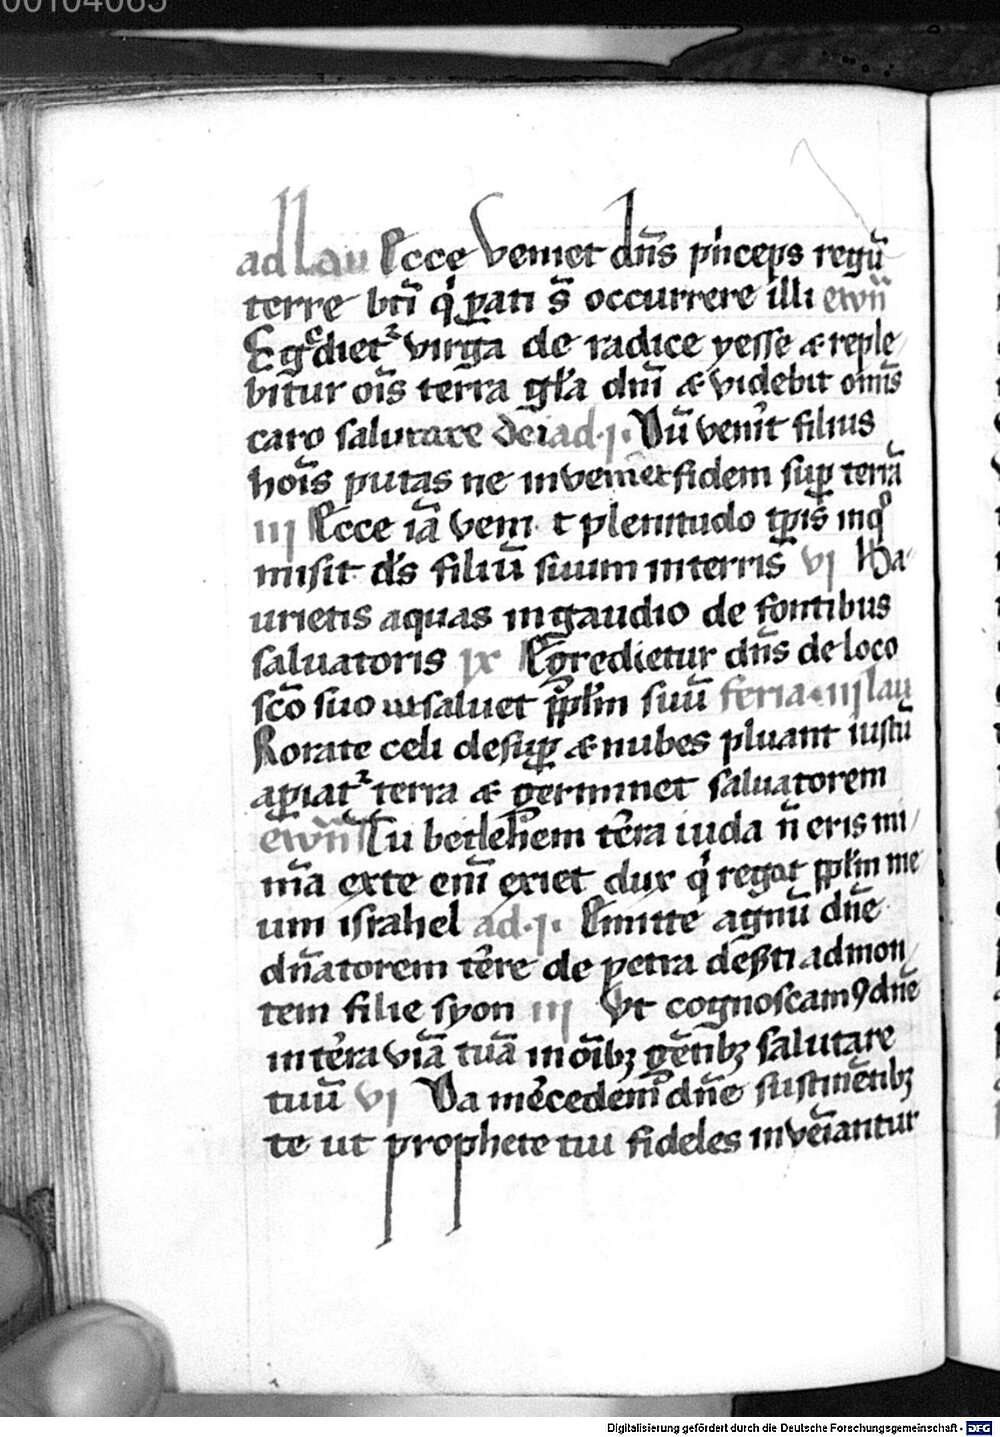 00104065
ad Lau Ecce veniet dn̄s pⁱnceps regū
terre bt̄i qⁱ ꝑati s̄ occurrere illi ew̄n
Eg͛diet᷑ virga de radice yesse & reple
bitur oīs terra gl̄a dn̄i & videbit omīs
caro salutare dei ad ·j· Dū ven͛it filius
hoīs putas ne inveniet fidem suꝑ terrā
iij Ecce iā venit plenitudo tp̄is in qͦ
misit ds̄ filiū suum in terris vj Ha-
urietis aquas in gaudio de fontibus
saluatoris ix Egredietur dn̄s de loco
sc̄o suo ut saluet pp̄lm suū feria iij lau
Rorate celi desuꝑ & nubes pluant iustū
aꝑiat᷑ terra & germinet saluatorem
ew̄n Tu betlehem t͛ra iuda n̄ eris mi
m̄a ex te en̄i exiet dux qⁱ regat pp̄lm me
um israhel ad ·j· Emitte agnū dn̄e
dn̄atorem t͛re de petra des͛ti ad mon
tem filie syon iij Ut cognoscamꝰ dn̄e
in t͛ra viā tuā in oīb; gētib; salutare
tuū vj Da m͛cedem dn̄e sustinētib;
te ut prophete tui fideles inveīantur
Digitalisierung gefördert durch die Deutsche Forschungsgemeinschaft - DFG